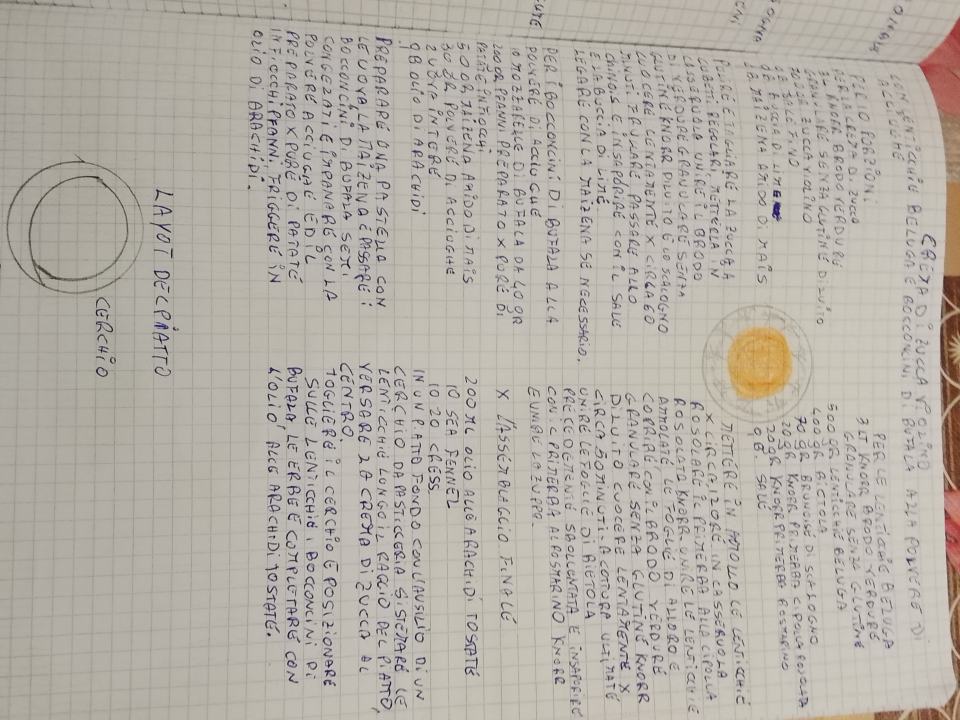 CREMA DI ZUCCA VIOLINO
CON LENTICCHIE BELUGA E BOCCONCINI DI BUFALA ALLA POLVERE DI
ACCIUGHE
PER 10 PORZIONI
PER LA CREMA DI ZUCCA
3 LT KNORR BRODO VERDURE
GRANULARE SENZA GLUTINE DILUITO
ZUCCA VIOLINO
SALE FINO
BUCCIA DI LIME
MAIZENA AMIDO DI MAIS
PULIRE E TAGLIARE LA ZUCCA A
CUBETTI REGOLARI, METTERLA IN
CASSERUOLA UNIRE IL BRODO
DI VERDURE GRANULARE SENZA
GLUTINE KNORR DILUITO E LO SCALOGNO
CUOCERE LENTAMENTE X CIRCA 60
MINUTI FRULLARE PASSARE ALLO
CHINOIS E INSAPORIRE CON IL SALE
E LA BUCCIA DI LIME.
LEGARE CON LA MAIZENA SE NECESSARIO.
PER I BOCCONCINI DI BUFALA ALLA
POLVERE DI ACCIUGHE
10 MOZZARELLE DI BUFALA DA 40 GR
200 GR PFANNI PREPARATO X PURÈ DI
PATATE INFIOCCHI
50 GR MAIZENA AMIDO DI MAIS
30 GR POLVERE DI ACCIUGHE
2 UOVA INTERE
QB OLIO DI ARACHIDI
PREPARARE UNA PASTELLA CON
LE UOVA LA MAIZENA E PASSARE I
BOCCONCINI DI BUFALA SEMI
CONGELATI E IMPANARE CON LA
POLVERE ACCIUGHE ED IL
PREPARATO X PURÈ DI PATATE
INFIOCCHI PFANNI. FRIGGERE IN
OLIO DI ARACHIDI.
LAYOT DEL PIATTO
CERCHIO
PER LE LENTICCHIE BELUGA
3 LT KNORR BRODO VERDURE
GRANULARE SENZA GLUTINE
500 GR LENTICCHIE BELUGA
400 GR BIETOLA
70 GR BRUNOISE DI SCALOGNO
20 GR KNORR PRIMERBA CIPOLLA ROSOLATA
20 GR KNORR PRIMERBA ROSMARINO
QB SALE
METTERE IN AMMOLLO LE LENTICCHIE
X CIRCA 12 ORE IN CASSERUOLA
ROSOLARE IL PRIMERBA ALLA CIPOLLA
ROSOLATA KNORR UNIRE LE LENTICCHIE
AMMOLATE LE FOGLIE DI ALLORO E
COPRIRE CON IL BRODO VERDURE
GRANULARE SENZA GLUTINE KNORR
DILUITO CUOCERE LENTAMENTE X
CIRCA 50 MINUTI A COTTURA ULTIMATE
UNIRE LE FOGLIE DI BIETOLA
PRECEDENTEMENTE SBOLLENTATA E INSAPORIRE
CON IL PRIMERBA AL ROSMARINO KNORR
E UNIRE LA ZUPPA
X L'ASSEMBLAGGIO FINALE
200 ML OLIO ALLE ARACHIDI TOSTATE
10 SEA FENNEL
10.20 CRESS
IN UN PIATTO FONDO CON L'AUSILIO DI UN
CERCHIO DA PASTICCERIA SISTEMARE LE
LENTICCHIE LUNGO IL RAGGIO DEL PIATTO,
VERSARE LA CREMA DI ZUCCA AL
CENTRO.
TOGLIERE IL CERCHIO E POSIZIONARE
SULLE LENTICCHIE I BOCCONCINI DI
BUFALA LE ERBE E COMPLETARE CON
L'OLIO, ALLE ARACHIDI TOSTATE.